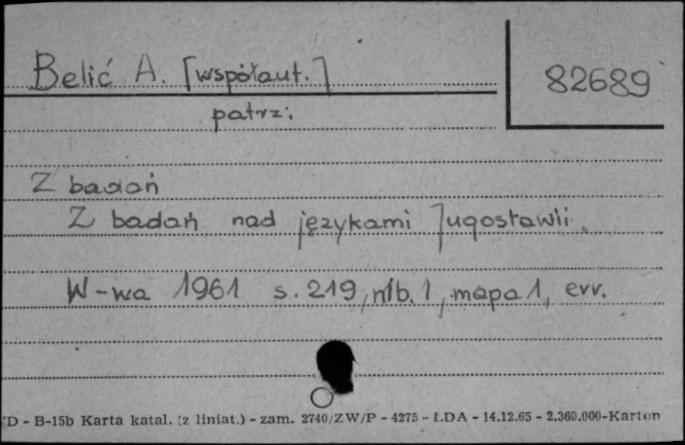 Belić A. [współaut.]
82689
patrz:
Z badań
Z badań nad językami Jugosławii.
W-wa 1961 s. 219, nlb. 1, mapa 1, err.
D - B-15b Karta katal. (z liniat.) - zam. 2740/ZW/P - 4275 - ŁDA - 14.12.65 - 2.360.000-Karton